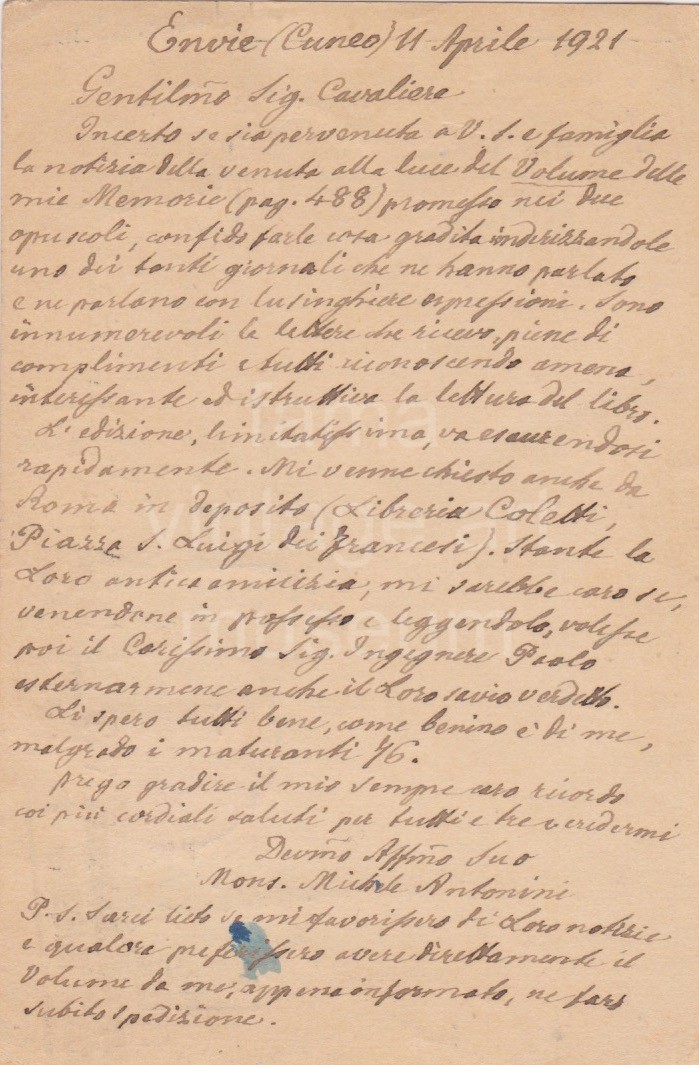 Envie (Cuneo) 11 Aprile 1921
Gentilmo Sig. Cavaliere
Incerto se sia pervenuta a V. S. e famiglia
la notizia della venuta alla luce del Volume delle
mie Memorie (pag. 488) promesso nei due
opuscoli, confido farle cosa gradita indirizzandole
uno dei tanti giornali che ne hanno parlato
e ne parlano con lusinghiere espressioni. Sono
innumerevoli le lettere che ricevo, piene di
complimenti e tutti riconoscendo amena,
interessante ed istruttiva la lettura del libro.
L'edizione, limitatissima, va esaurendosi
rapidamente. Mi venne chiesto anche da
Roma in deposito (Libreria Coletti,
Piazza S. Luigi dei Francesi). Stante la
Loro antica amicizia, mi sarebbe caro se,
venendone in possesso e leggendolo, volesse
poi il Carissimo Sig. Ingegnere Paolo
esternarmene anche il Loro savio verdetto.
Li spero tutti bene, come benino è di me,
malgrado i maturanti 76.
Prego gradire il mio sempre caro ricordo
coi più cordiali saluti per tutti e tre e credermi
Devmo Affmo Suo
Mons. Michele Antonini
P. S. Sarei lieto se mi favorissero di Loro notizie
e qualora preferissero avere direttamente il
Volume da me, appena informato, ne farò
subito spedizione.
vintage
museum